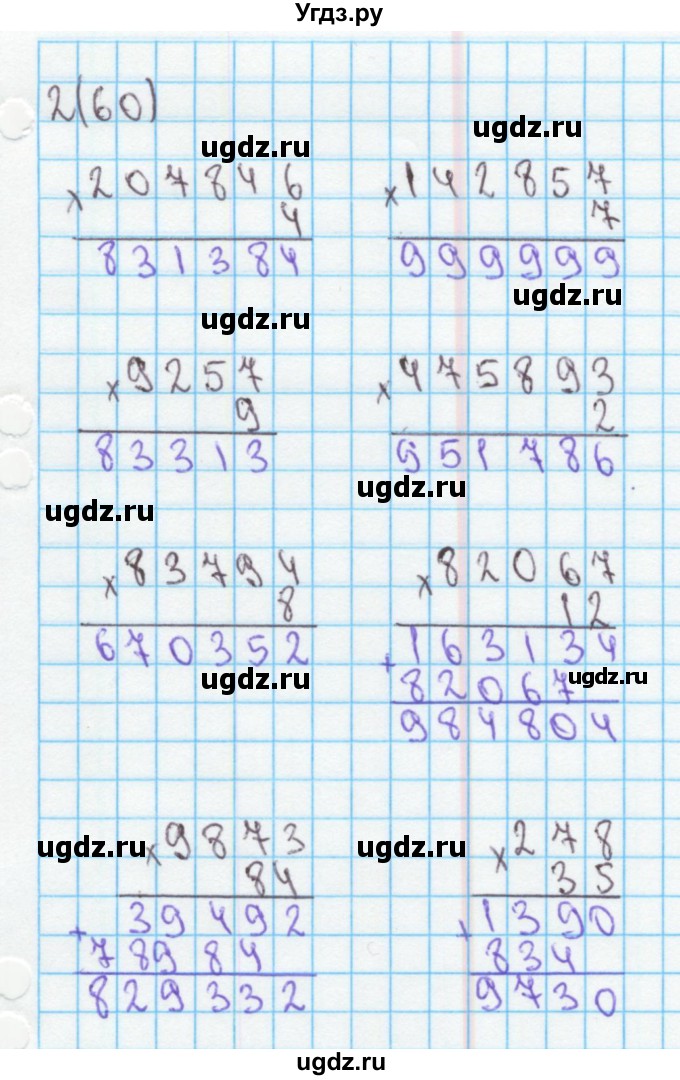 Угдз.ру
2(60)
ugdz.ru
ugdz.ru
× 207846
4
831384
× 142857
7
999999
ugdz.ru
ugdz.ru
× 9257
9
83313
× 475893
2
951786
ugdz.ru
ugdz.ru
× 83794
8
670352
× 82067
12
+ 163134
82067
984804
ugdz.ru
ugdz.ru
ugdz.ru
× 9873
84
+ 39492
78984
829332
ugdz.ru
× 278
35
+ 1390
834
9730
ugdz.ru